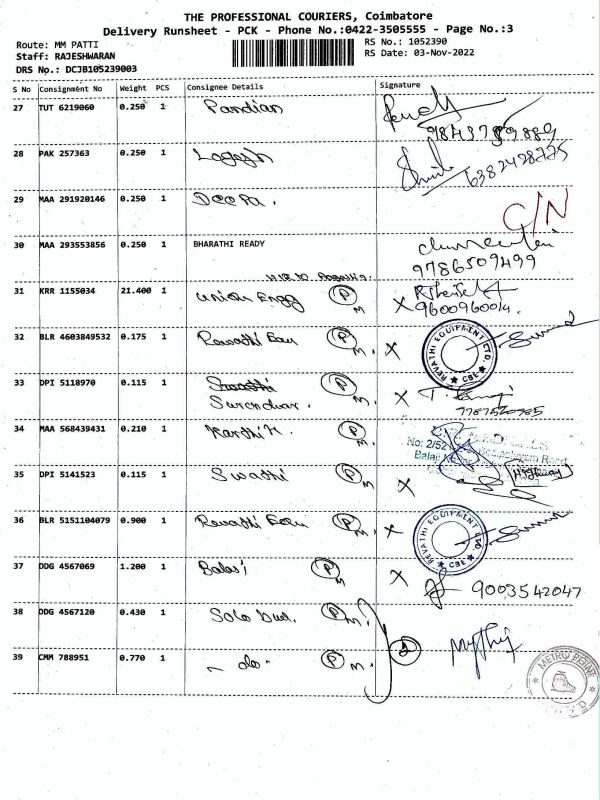 THE PROFESSIONAL COURIERS, Coimbatore
Delivery Runsheet - PCK - Phone No.:0422-3505555 - Page No.:3
Route: MM PATTI
RS No.: 1052390
Staff: RAJESHWARAN
RS Date: 03-Nov-2022
DRS No.: DCJB105239003
S No Consignment No Weight PCS Consignee Details Signature
27 TUT 6219060 0.250 1 Pandian
28 PAK 257363 0.250 1 Logesh 6382428775
29 MAA 291920146 0.250 1 Deepa. C/N
30 MAA 293553856 0.250 1 BHARATHI READY
9786509499
31 KRR 1155034 21.400 1 Union Engg P M X
9600960014.
32 BLR 4603849532 0.175 1 Revathi Equ P M. X REVATHI EQUIPMENT LTD. CBE
33 DPI 5118970 0.115 1 Swathi P M. X
Surendar.
34 MAA 568439431 0.210 1 Karthik. P M.
No: 2/52
Balaji
35 DPI 5141523 0.115 1 Swathi P M X
36 BLR 5151104079 0.900 1 Revathi Equ P M. X REVATHI EQUIPMENT LTD. CBE
37 DDG 4567069 1.200 1 Balaji P M X 9003542047
38 DDG 4567120 0.430 1 P M.
39 CMM 788951 0.770 1 - do - P M. 2
METRO POINT